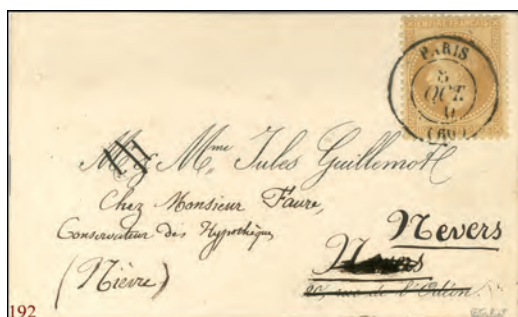 EMPIRE FRANÇAIS
PARIS
8
OCT.
(60)
M. & Mme Jules Guillemot
Chez Monsieur Faure,
Conservateur des Hypothèques
Nevers
Nevers
(Nièvre)
20, rue de l'Odéon.
192